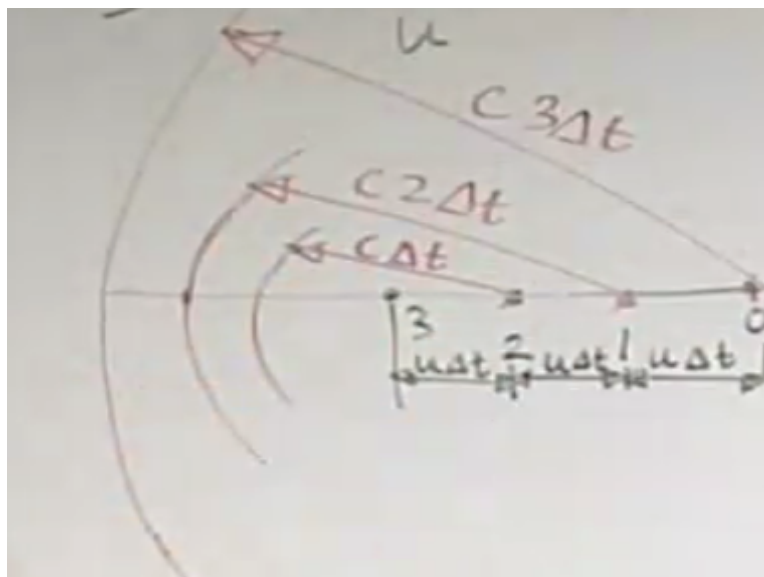 u
C 3Δt
C 2Δt
CΔt
3
2
1
0
uΔt
uΔt
uΔt